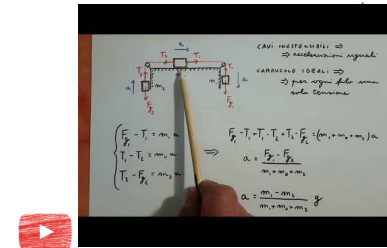 CAVI INESTENSIBILI ⇒
⇒ accelerazioni uguali
CARRUCOLE IDEALI ⇒
⇒ per ogni filo una
sola tensione
a
T₂ T₁
T₂ T₁
a m₂ m₁ a
Fg₂ Fg₁
Fg₁ - T₁ = m₁ a
T₁ - T₂ = m₃ a
T₂ - Fg₂ = m₂ a
⇒
Fg₁ - T₁ + T₁ - T₂ + T₂ - Fg₂ = (m₁ + m₂ + m₃) a
a = Fg₁ - Fg₂ / m₁ + m₂ + m₃
a = m₁ - m₂ / m₁ + m₂ + m₃ g